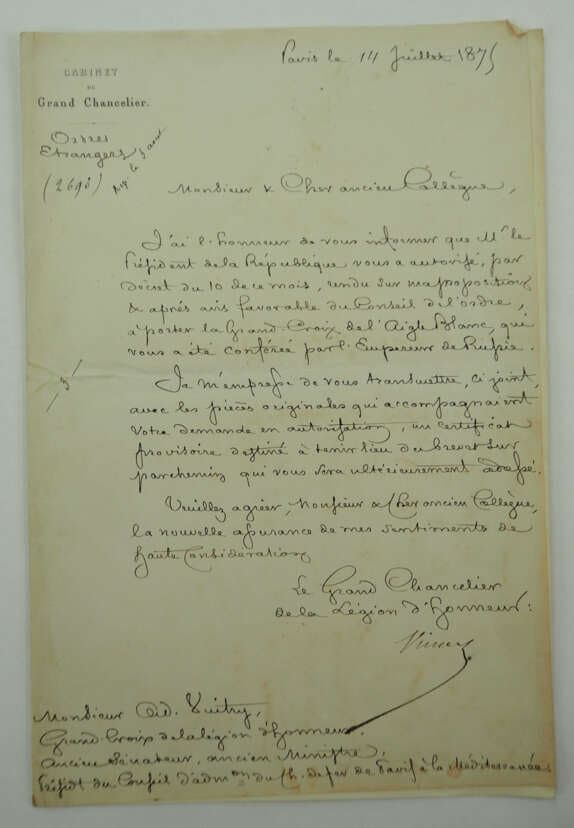 Paris le 14 Juillet 1875
CABINET
DU
Grand Chancelier.
Ordres
Etrangers
le 5 aout
(2693)
Monsieur & Cher ancien Collègue,
J'ai l'honneur de vous informer que Mr le
Président de la République vous a autorisé, par
décret du 10 de ce mois, rendu sur ma proposition
& après avis favorable du Conseil de l'ordre,
à porter la Grand-Croix de l'Aigle Blanc, qui
vous a été conférée par l'Empereur de Russie.
Je m'empresse de vous transmettre, ci joint,
avec les pièces originales qui accompagnaient
votre demande en autorisation, un certificat
provisoire destiné à tenir lieu du brevet sur
parchemin qui vous sera ultérieurement adressé.
3
Veuillez agréer, Monsieur & Cher ancien Collègue,
la nouvelle assurance de mes sentiments de
haute considération
Le Grand Chancelier
de la Légion d'honneur:
Vinoy
Monsieur Ad. Vuitry,
Grand-Croix de la légion d'honneur,
Ancien Sénateur, ancien Ministre,
Présidt du Conseil d'admon du Ch. de fer de Paris à la Méditerranée